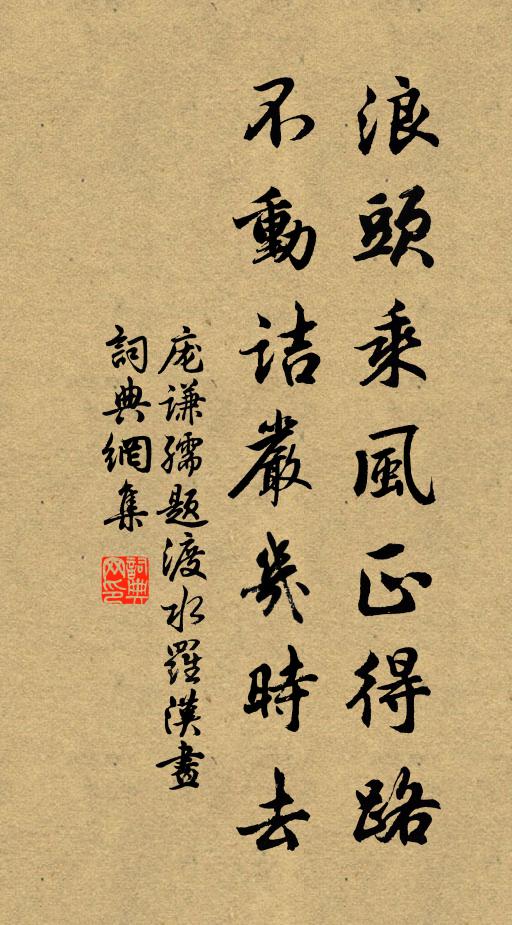 浪頭乘風正得路
不動詰嚴幾時去
庞谦孺题渡水羅漢畫
詞典網集
詞典网印